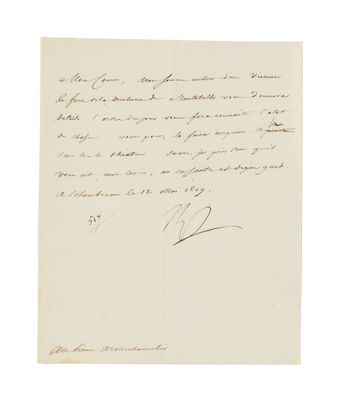 Mon Cousin, nous sommes maîtres de Vienne
le frère de la Duchesse de Montebello vous donnera
details. L'ordre du jour vous fera connaître l'état
de choses. vous pouvez le faire imprimer
sur tous les théâtres. Sur ce, je prie Dieu qu'il
vous ait mon Cousin, en sa sainte et digne garde.
à Schönbrunn le 12 Mai 1809.
Au Prince Archichancelier